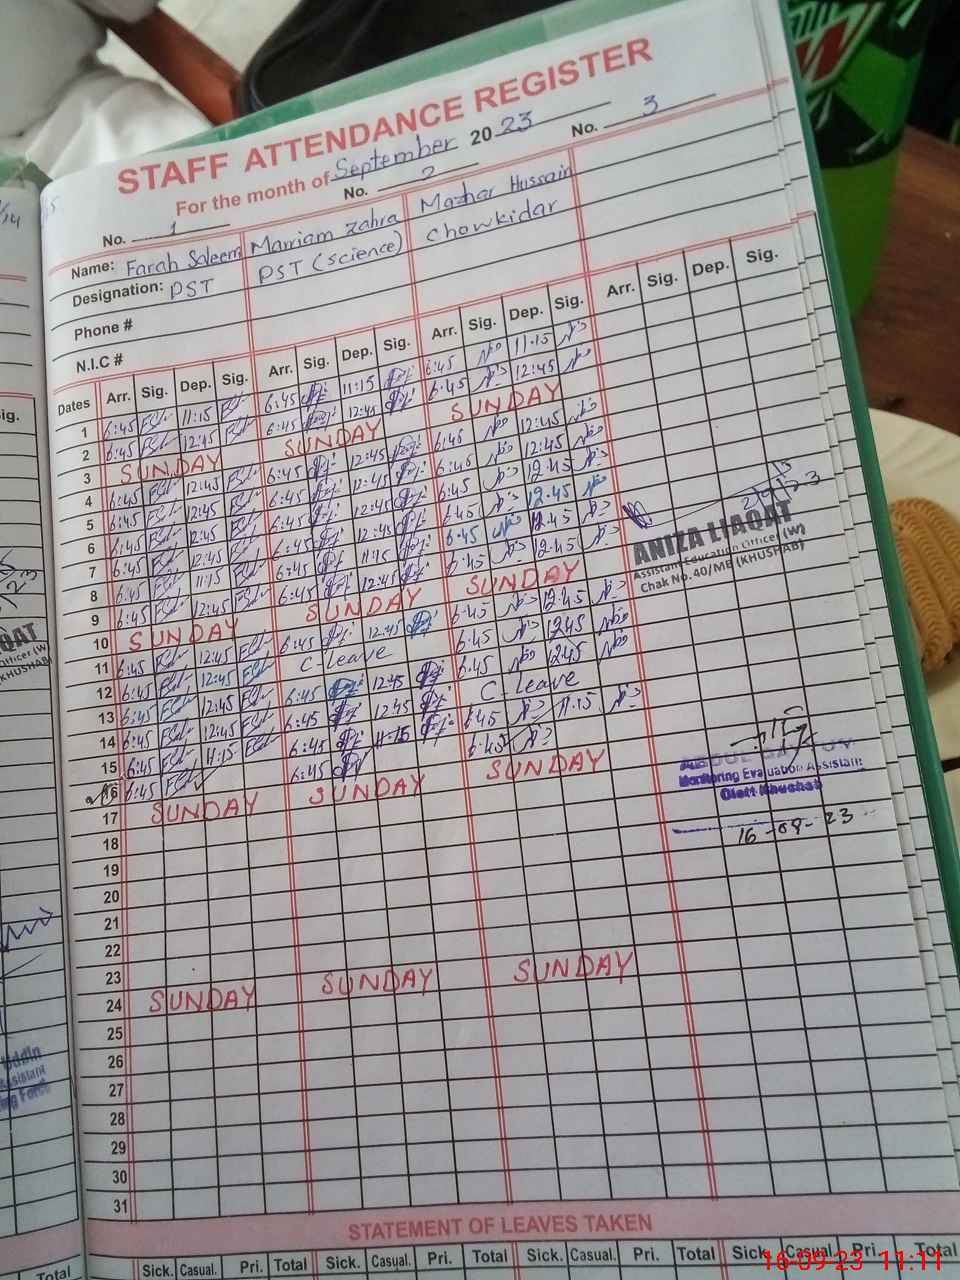 STAFF ATTENDANCE REGISTER
For the month of September 20 23
No. 1 No. 2 No. 3
Name: Farah Saleem Marriam Zahra Mazhar Hussain
Designation: PST PST (science) Chowkidar
Phone #
N.I.C #
Dates Arr. Sig. Dep. Sig. Arr. Sig. Dep. Sig. Arr. Sig. Dep. Sig. Arr. Sig. Dep. Sig.
1 6:45 11:15 6:45 11:15 6:45 11:15
2 6:45 12:45 6:45 12:45 6:45 12:45
3 SUNDAY SUNDAY SUNDAY
4 6:45 12:45 6:45 12:45 6:45 12:45
5 6:45 12:45 6:45 12:45 6:45 12:45
6 6:45 12:45 6:45 12:45 6:45 12:45
7 6:45 12:45 6:45 12:45 6:45 12.45
8 6:45 11:15 6:45 11:15 6.45 12.45
9 6:45 12:45 6:45 12:45 6.45 12.45
10 SUNDAY SUNDAY SUNDAY
11 6:45 12:45 6:45 12:45 6.45 12.45
12 6:45 12:45 C-leave 6:45 12.45
13 6:45 12:45 6:45 12:45 6:45 12.45
14 6:45 12:45 6:45 12:45 C-Leave
15 6:45 11:15 6:45 11:15 6.45 11.15
16 6:45 6:45 6:45
17 SUNDAY SUNDAY SUNDAY
18
19
20
21
22
23
24 SUNDAY SUNDAY SUNDAY
25
26
27
28
29
30
31
ANIZA LIAQAT
Assistant Education Officer (W)
Chak No.40/MB (KHUSHAB)
Monitoring Evaluation Assistant
Distt Khushab
16-09-23
STATEMENT OF LEAVES TAKEN
Sick. Casual. Pri. Total Sick. Casual. Pri. Total Sick. Casual. Pri. Total Sick. Casual. Pri. Total
16-09-23 11:11